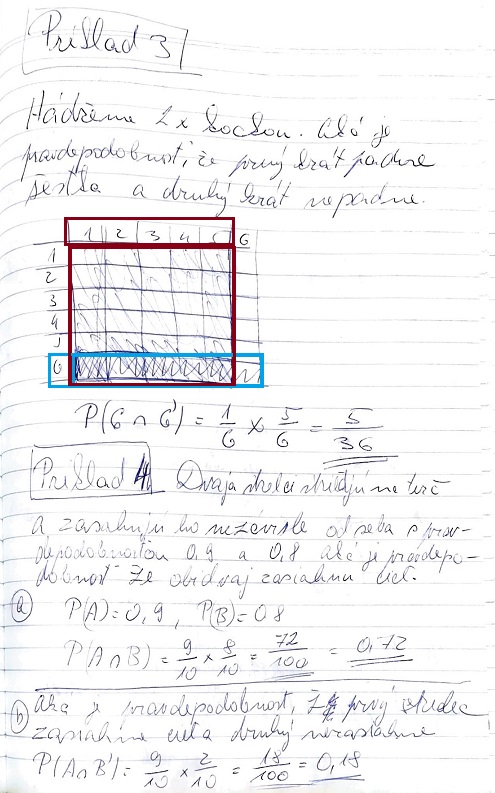 Príklad 3
Hádžeme 2 x kockou. Aká je
pravdepodobnosť, že prvý krát padne
šestka a druhý krát nepadne.
1 2 3 4 5 6
1
2
3
4
5
6
P(6 ∩ 6') = 1/6 × 5/6 = 5/36
Príklad 4 Dvaja strelci strieľajú na terč
a zasahujú ho nezávisle od seba s prav-
depodobnosťou 0,9 a 0,8 aká je pravdepo-
dobnosť že obidvaja zasiahnu cieľ.
a P(A)=0,9, P(B)=0,8
P(A∩B) = 9/10 × 8/10 = 72/100 = 0,72
b aká je pravdepodobnosť, že prvý strelec
zasiahne cieľ a druhý nezasiahne
P(A∩B') = 9/10 × 2/10 = 18/100 = 0,18